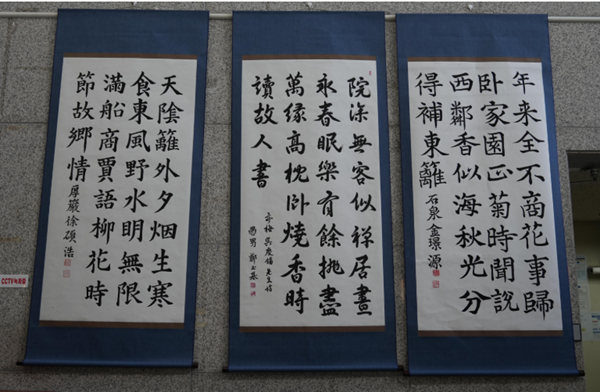 年来全不商花事歸
卧家園正菊時聞說
西鄰香似海秋光分
得補東籬 石泉 金璟源
院深無客似禅居晝
永春眠樂有餘抛盡
萬緣高枕卧燒香時
讀故人書
天陰籬外夕烟生寒
食東風野水明無限
滿船商賈語柳花時
節故鄉情 厚巖 徐碩浩
CCTV